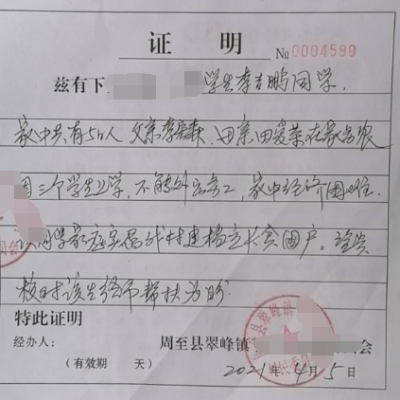 证 明
№0004590
兹有下 学生李吉鹏同学,
家中共有5口人 父亲李 母亲田爱菜在家务农
因三个学生上学,不能外出务工,家中经济困难.
该同学家庭实属我村建档立卡贫困户。望贵
校对该生给予帮扶为盼
特此证明
经办人: 周至县翠峰镇 会
(有效期 天) 2021年4月5日